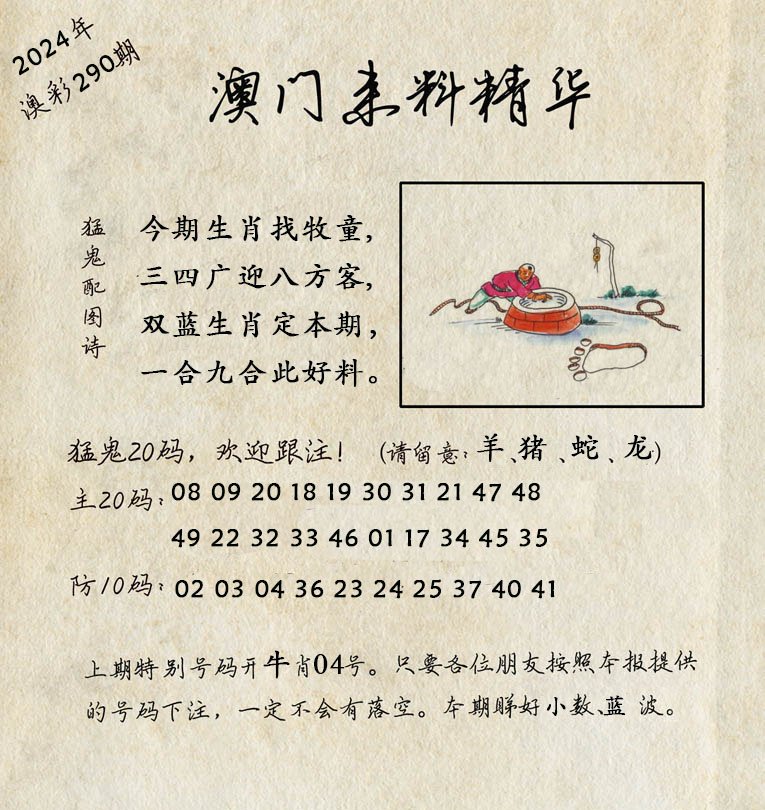 2024年
澳彩290期
澳门来料精华
猛鬼配图诗
今期生肖找牧童，
三四广迎八方客，
双蓝生肖定本期，
一合九合此好料。
猛鬼20码，欢迎跟注！（请留意：羊、猪、蛇、龙）
主20码：08 09 20 18 19 30 31 21 47 48
49 22 32 33 46 01 17 34 45 35
防10码：02 03 04 36 23 24 25 37 40 41
上期特别号码开牛肖04号。只要各位朋友按照本报提供
的号码下注，一定不会有落空。本期睇好小数、蓝 波。